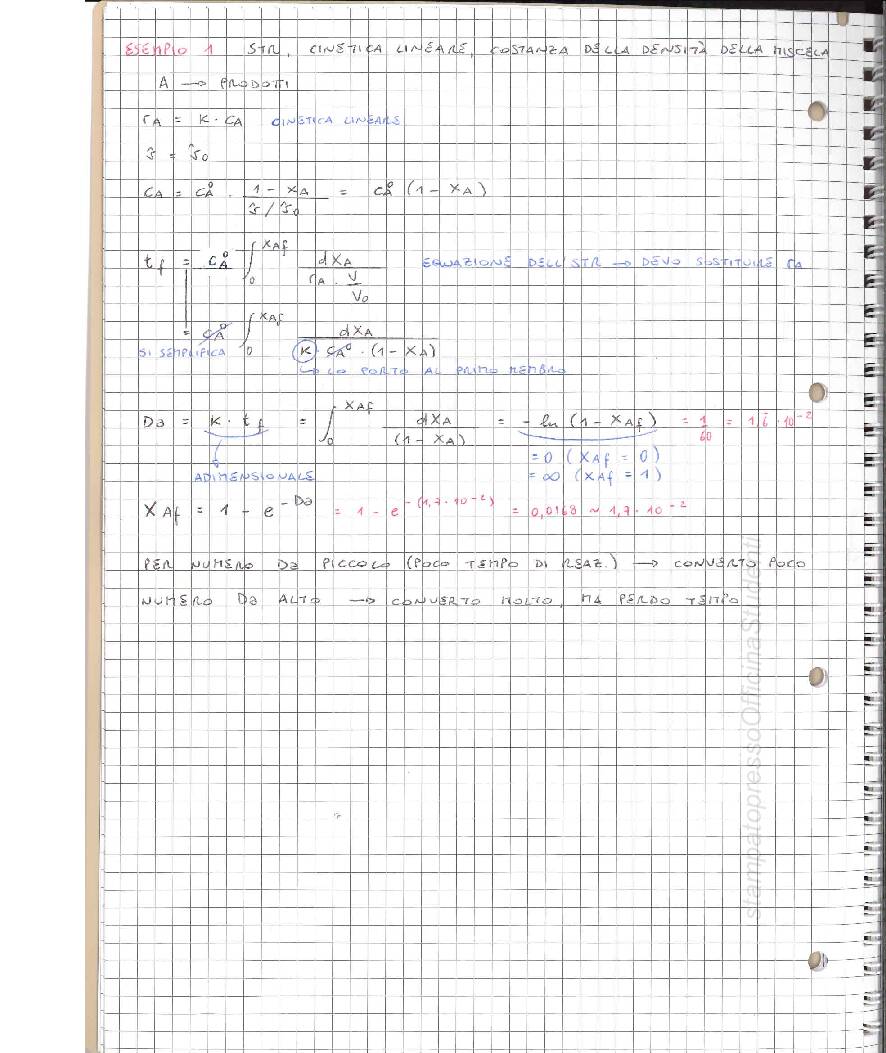 ESEMPIO 1 STR, CINETICA LINEARE, COSTANZA DELLA DENSITÀ DELLA MISCELA
A → PRODOTTI
rA = K · CA CINETICA LINEARE
ρ̂ = ρ̂0
CA = CA° · (1 - XA) / (ρ̂/ρ̂0) = CA° (1 - XA)
tf = CA° ∫0^XAf dXA / (rA · V/V0) EQUAZIONE DELL'STR → DEVO SOSTITUIRE rA
= CA° ∫0^XAf dXA / (K · CA° · (1 - XA))
SI SEMPLIFICA
↳ LO PORTO AL PRIMO MEMBRO
Da = K · tf = ∫0^XAf dXA / (1 - XA) = - ln (1 - XAf) = 1/60 = 1,6̄ · 10^-2
= 0 (XAf = 0)
ADIMENSIONALE = ∞ (XAf = 1)
XAf = 1 - e^-Da = 1 - e^-(1,7 · 10^-2) = 0,0168 ~ 1,7 · 10^-2
PER NUMERO Da PICCOLO (POCO TEMPO DI REAZ.) → CONVERTO POCO
NUMERO Da ALTO → CONVERTO MOLTO, MA PERDO TEMPO
stampatopressoOfficinaStudenti